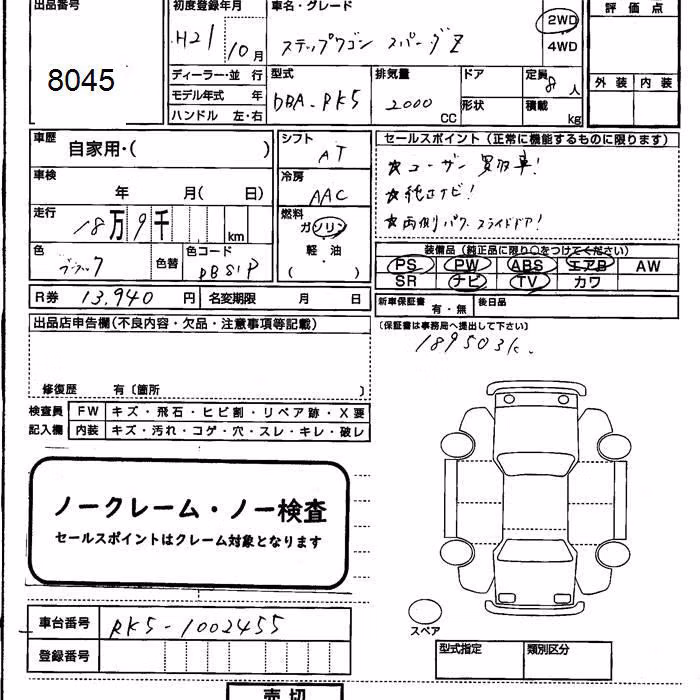 出品番号 初度登録年月 車名・グレード 評価点
8045 H21 10月 ステップワゴン スパーダZ 2WD 4WD
外装 内装
ディーラー・並行 型式 排気量 ドア 定員 8人
モデル年式 年 DBA-RK5 2000 CC 形状 積載 kg
ハンドル 左・右
車歴 自家用・( ) シフト AT
セールスポイント(正常に機能するものに限ります)
☆ユーザー買取車!
☆純正ナビ!
☆両側パワースライドドア!
車検 年 月( 日) 冷房 AAC
走行 18万9千 km 燃料 ガソリン 軽油 ・ ( )
色 ブラック 色替 色コード
装備品(純正品に限り○をつけてください)
PS PW ABS エアB AW
SR ナビ TV カワ
R券 13,940 円 名変期限 月 日
新車保証書 有・無 後日品
(保証書は事務局へ提出して下さい)
出品店申告欄(不良内容・欠品・注意事項等記載)
189503k.
修復歴 有〔箇所 〕
検査員 FW キズ・飛石・ヒビ割・リペア跡・X要
記入欄 内装 キズ・汚れ・コゲ・穴・スレ・キレ・破レ
ノークレーム・ノー検査
セールスポイントはクレーム対象となります
スペア
車台番号 RK5-1002455
登録番号
型式指定 類別区分
売切